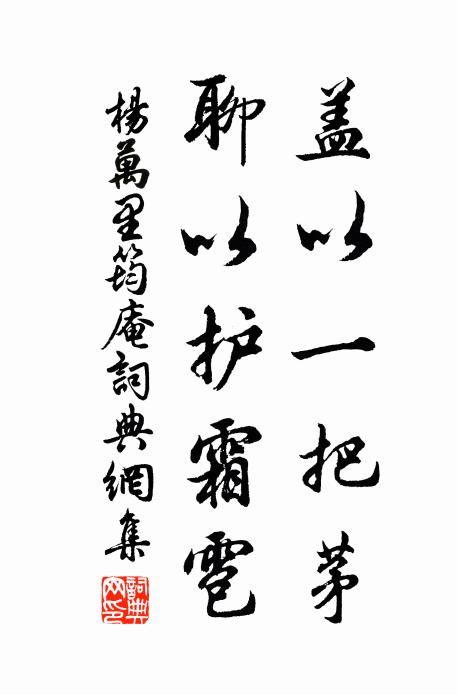 盖以一把茅
聊以护霜雹
楊萬里筠庵詞典網集
詞典网印